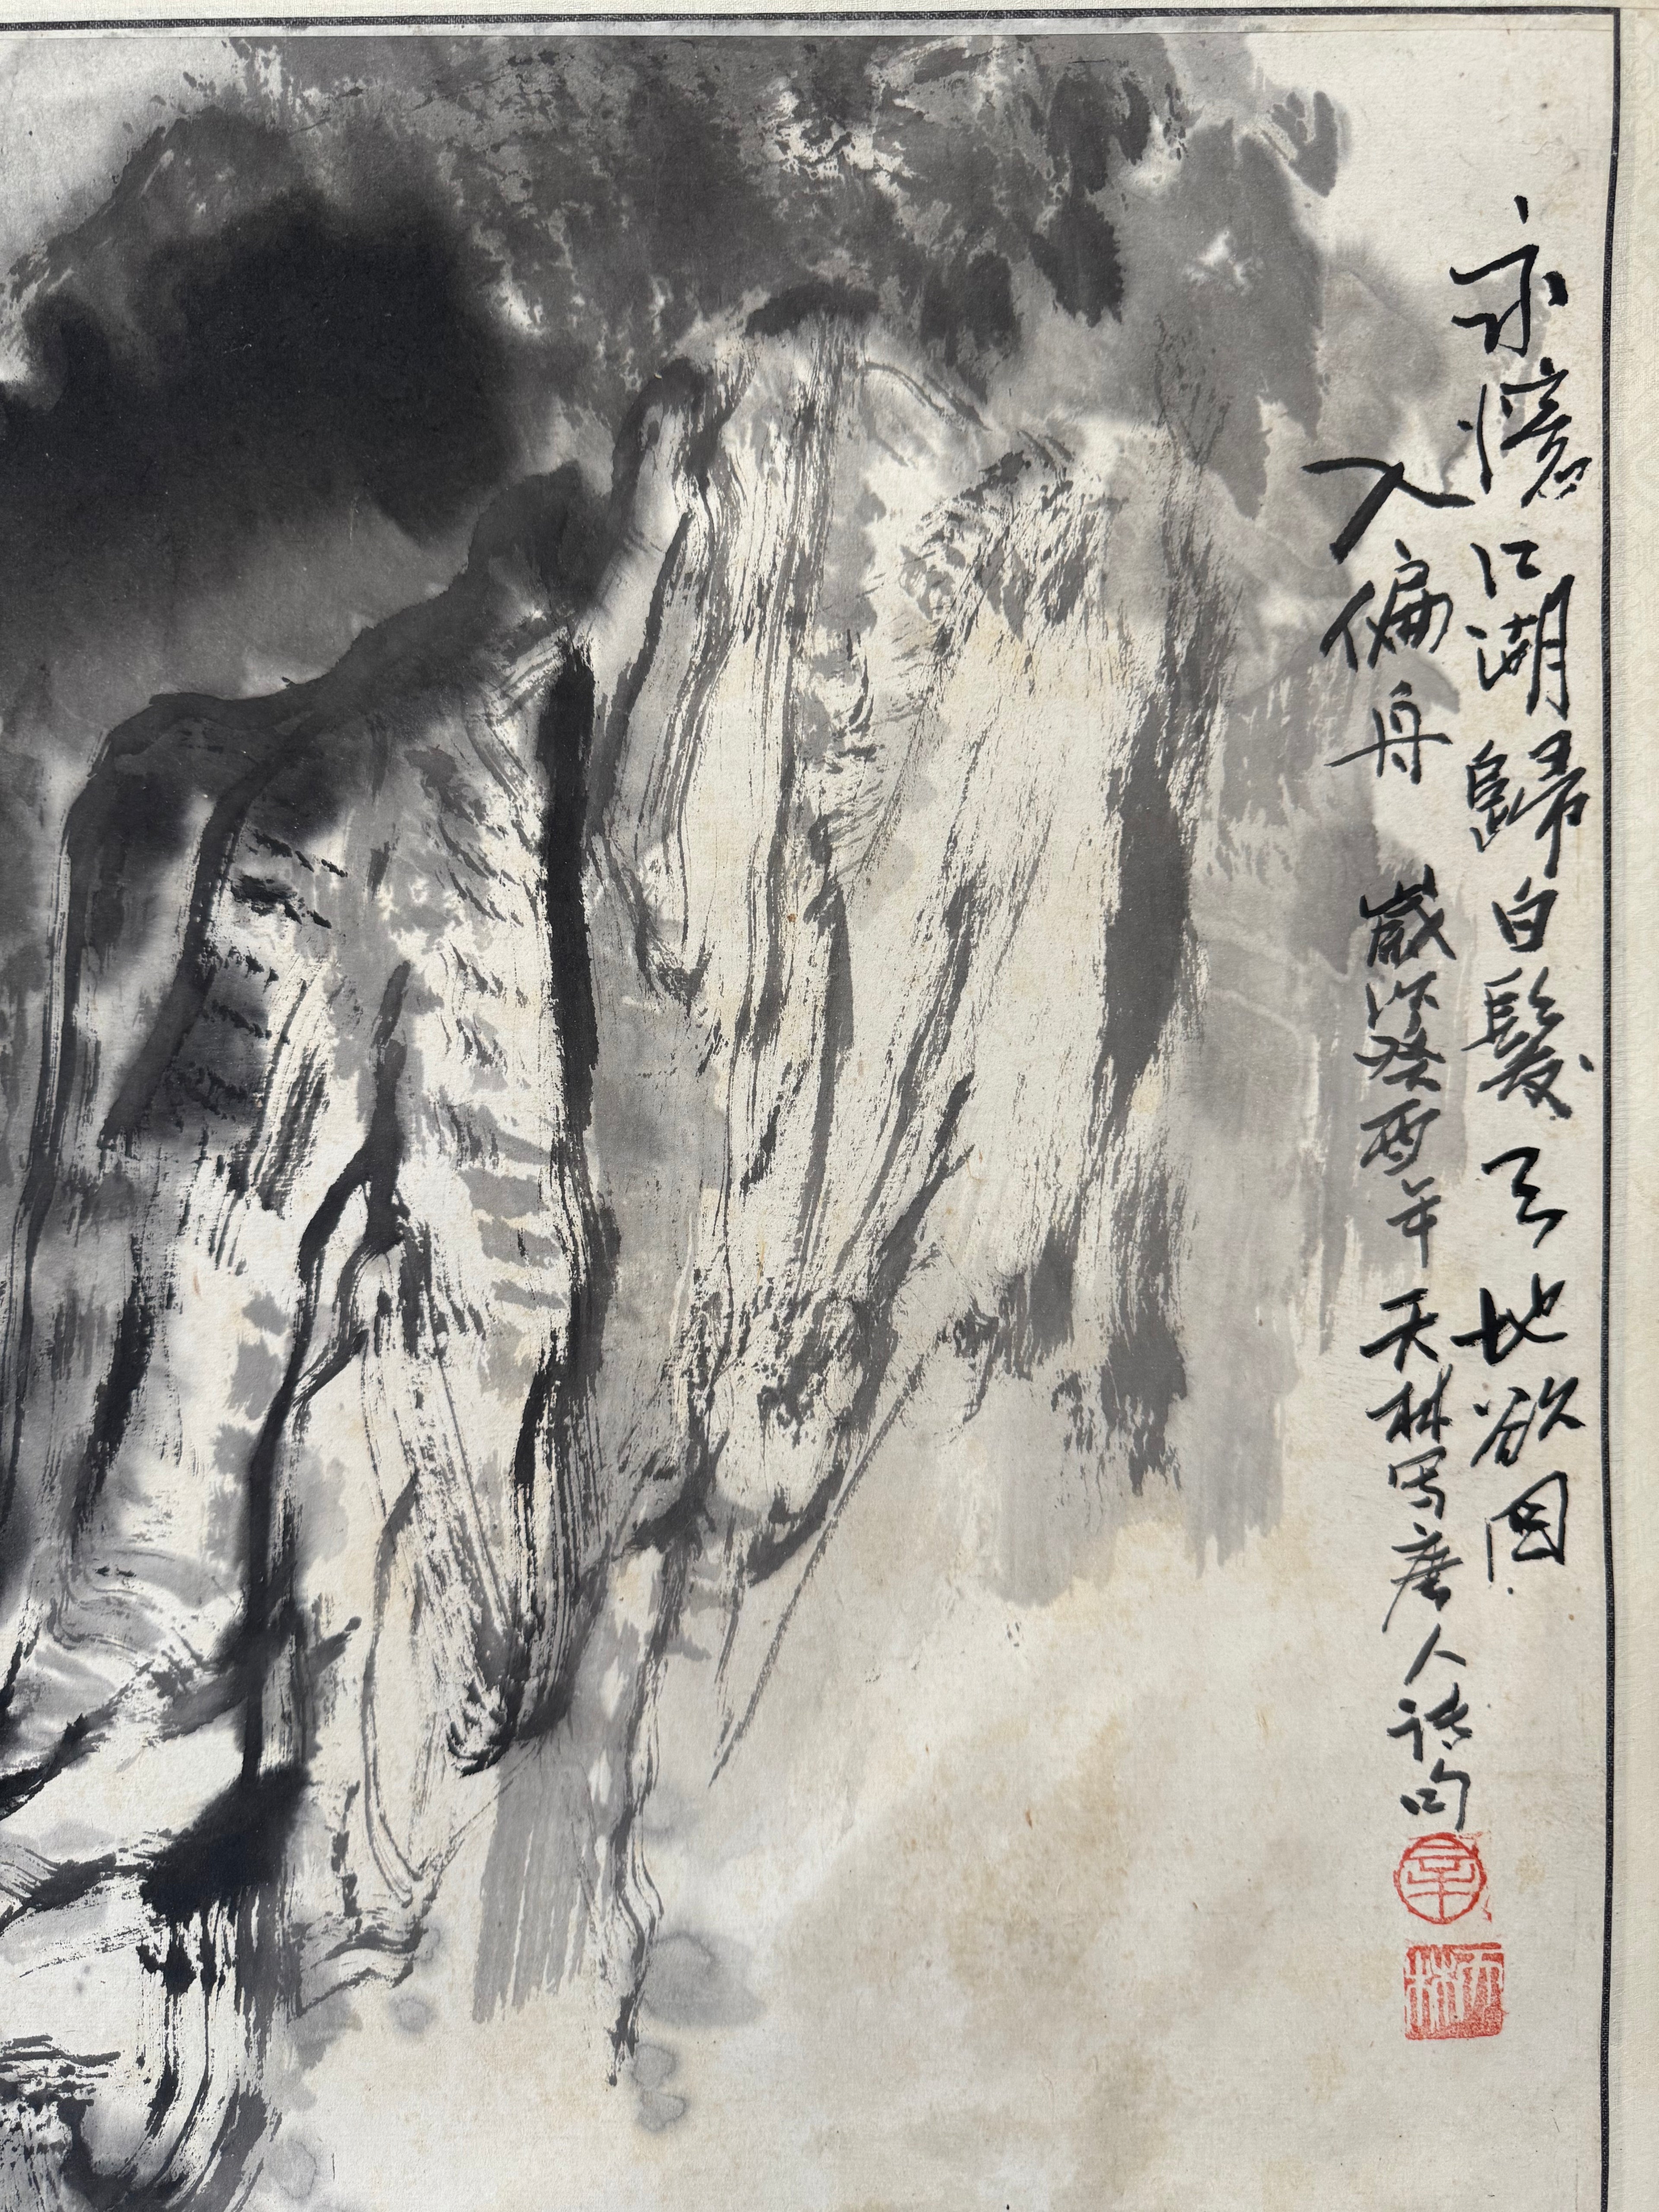 永憶江湖歸白髮天地欲回
入偏舟 歲次癸酉年 天林写唐人诗句
辛
天林